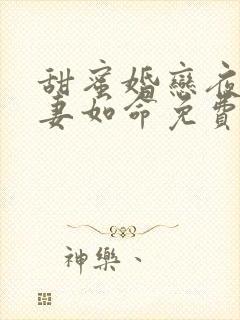 甜蜜婚戀夜
妻如命免費
神樂、